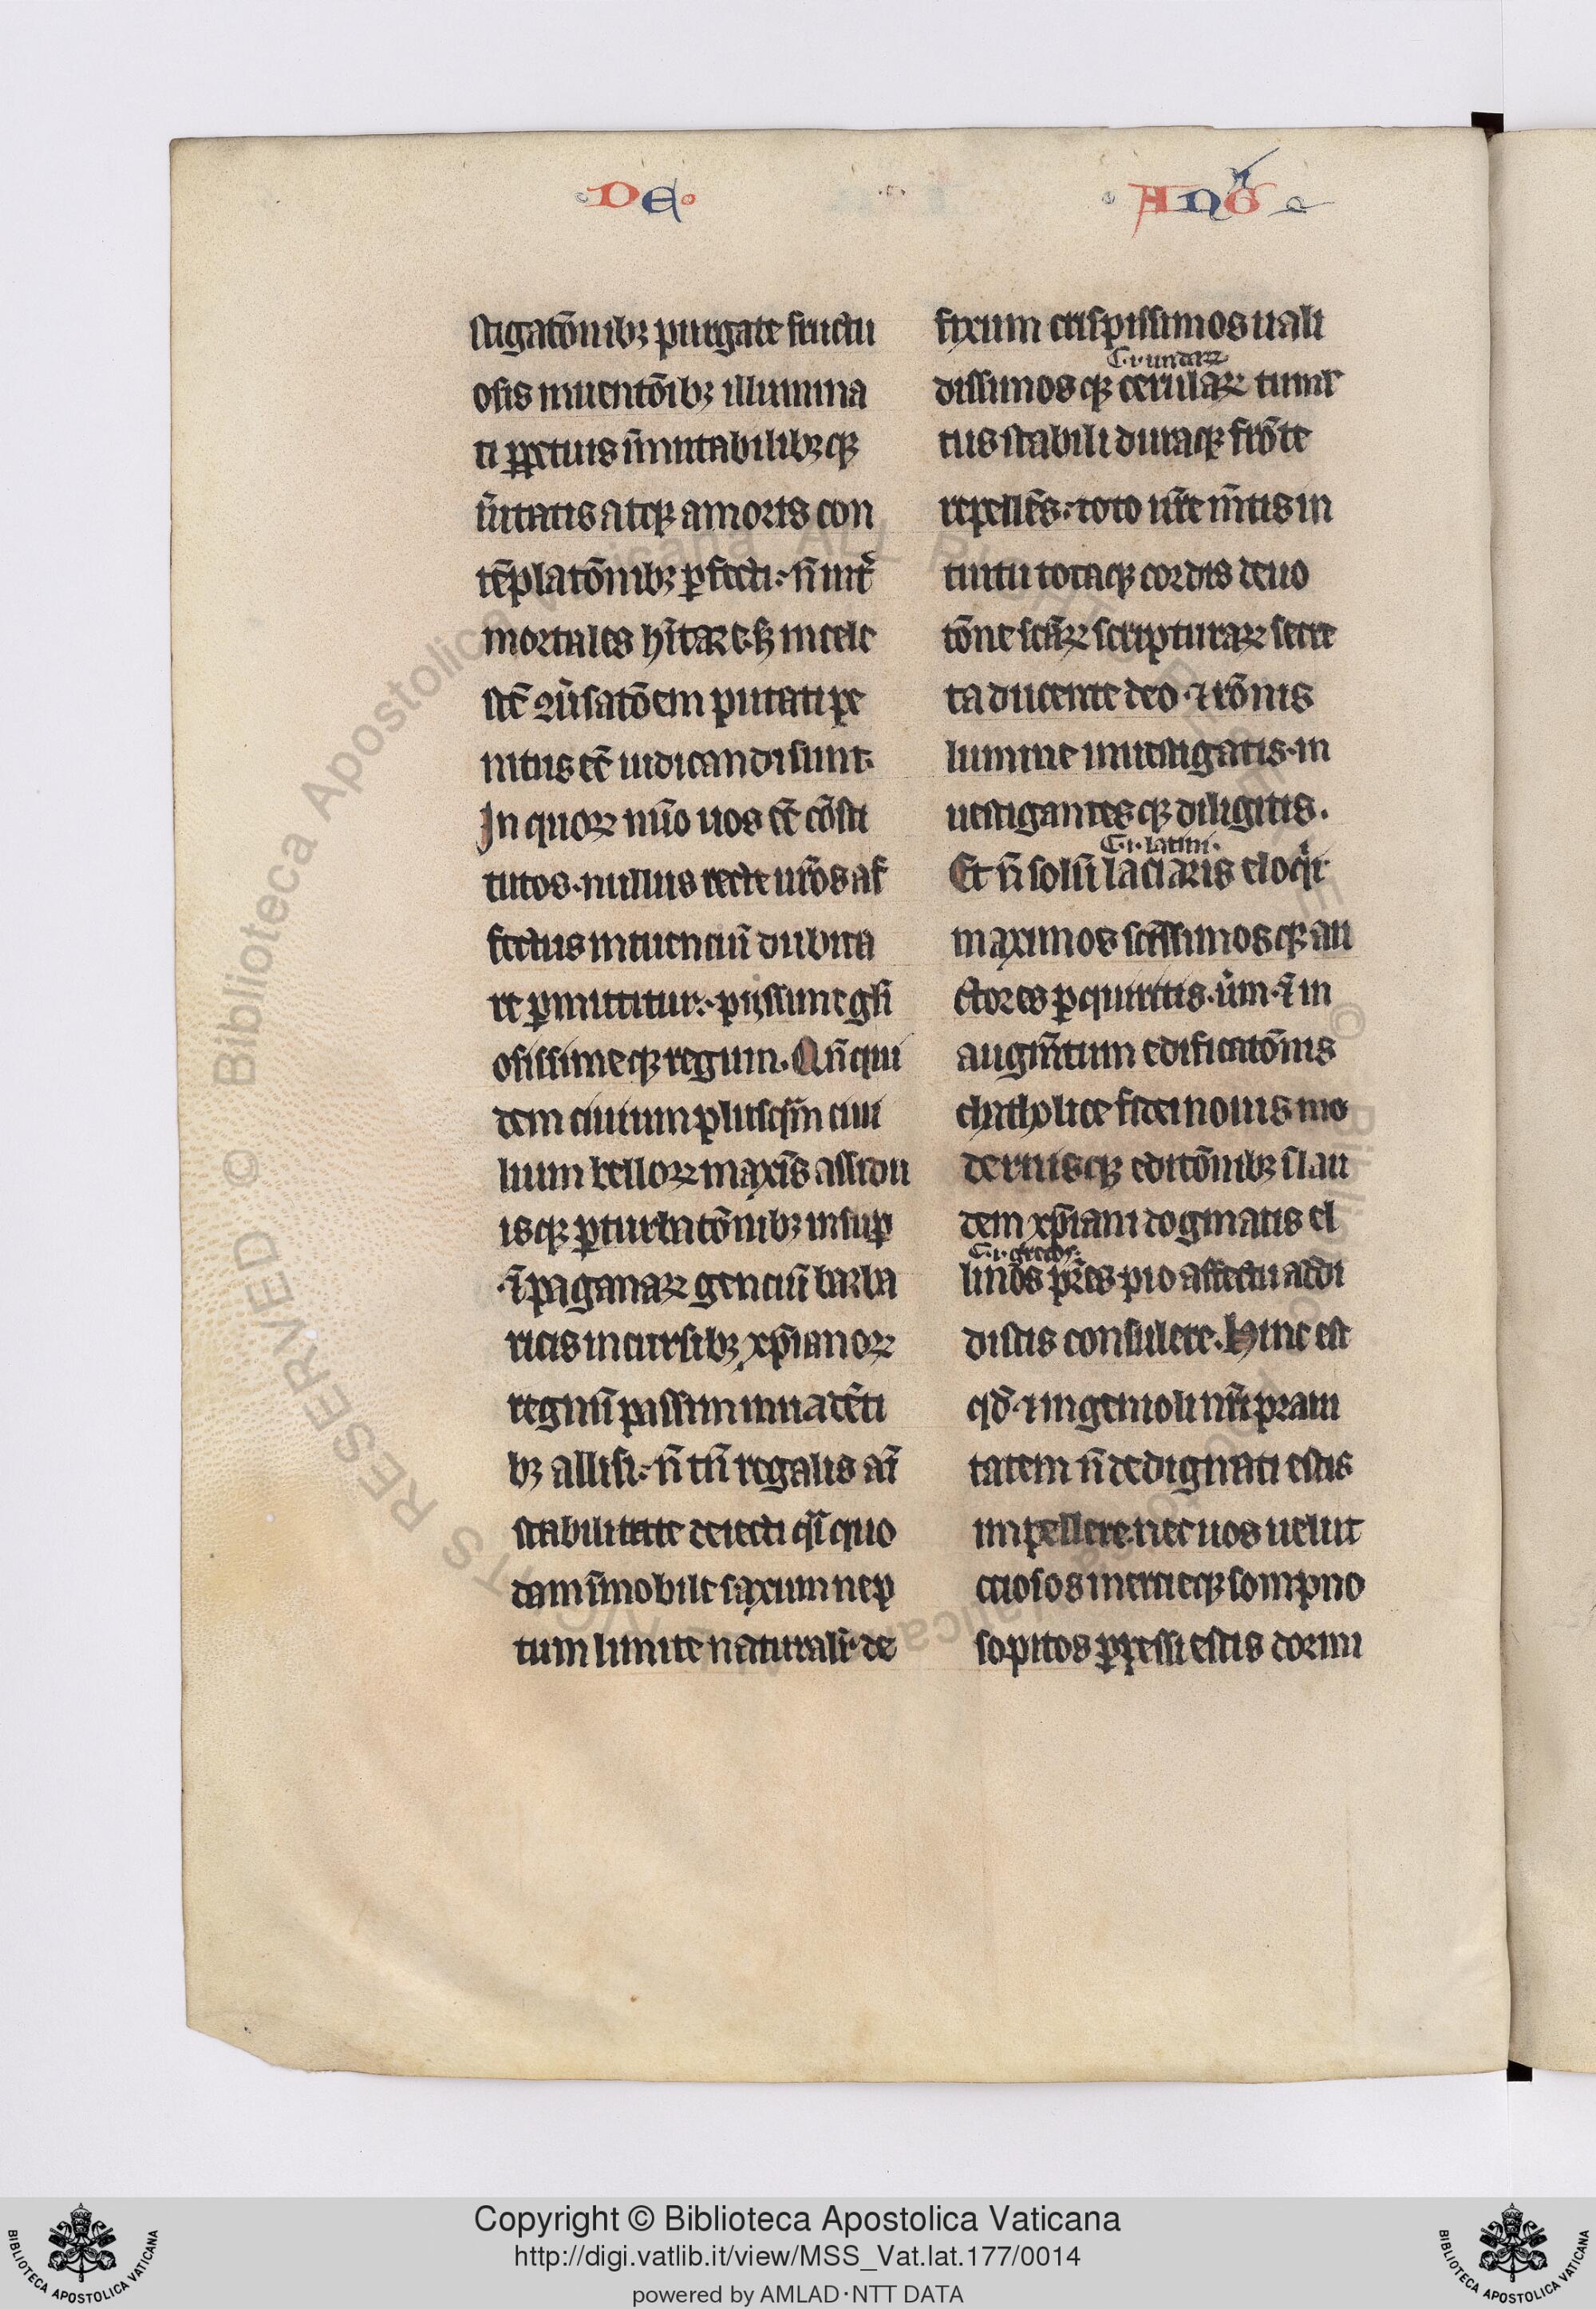 De Angͥ
stigatōnibꝫ purgate fructu
osis inuentōibꝫ illumina
ti ꝑpetuis īmutabilibꝫqꝫ
ūitatis atqꝫ amoris con
tēplatōnibꝫ ꝑfecti: n̄ int͛
mortales hītare· sꝫ in cele
stē ꝯu̾satōem putati pe
nitus ēē iudicandi sunt·
In quoꝝ nūo uos ēē cōsti
tutos· nullus recte ur̄os af
fectus intuenciū dubita
re ꝑmittitur: pijssime gl̄i
osissimeqꝫ regum. Qn̄qui
dem ciuium plusqꝫ̄ ciui
lium belloꝝ maxīs assidu
isqꝫ ꝑturbatōnibꝫ insuꝑ
·ī paganaꝝ genciū barba
ricis incursibꝫ xp̄ianoꝝ
regnū passim inuadēti
bꝫ allisi: n̄ tn̄ regalis aī
stabilitate deiecti qͣi quo
dam īmobile saxum nep
tum limite naturalr̄ de
fixum crispissimos uali
C·i· undaꝝ
dissimosqꝫ cerulaꝝ tumł
tus stabili duraqꝫ frōte
repellēs: toto ur̄e m̄tis in
tuitu totaqꝫ cordis deuo
tōne scāꝝ scripturaꝝ secre
ta ducente deo· ⁊ rōnis
lumine inuestigatis· in
uestigantesqꝫ diligitis.
C·i· latini·
Et n̄ solū laciaris eloqͥi
maximos scīssimosqꝫ au
ctores ꝑquiritis· u̾m· ī in
augm̄tum edificatōnis
chatholice fidei nouis mo
dernisqꝫ editōnibꝫ ī lau
dem xp̄iani dogmatis el
G·i· grecos·
linōs pr̄es· pio affectu addi
distis consulere. Hinc est
qd̄· ⁊ ingenioli nr̄i praui
tatem n̄ dedignati estis
impellere· nec uos uelut
ociosos inercieqꝫ sompno
sopitos ꝑpessi estis dormi
Copyright © Biblioteca Apostolica Vaticana
http://digi.vatlib.it/view/MSS_Vat.lat.177/0014
powered by AMLAD·NTT DATA
BIBLIOTECA APOSTOLICA VATICANA
BIBLIOTECA APOSTOLICA VATICANA